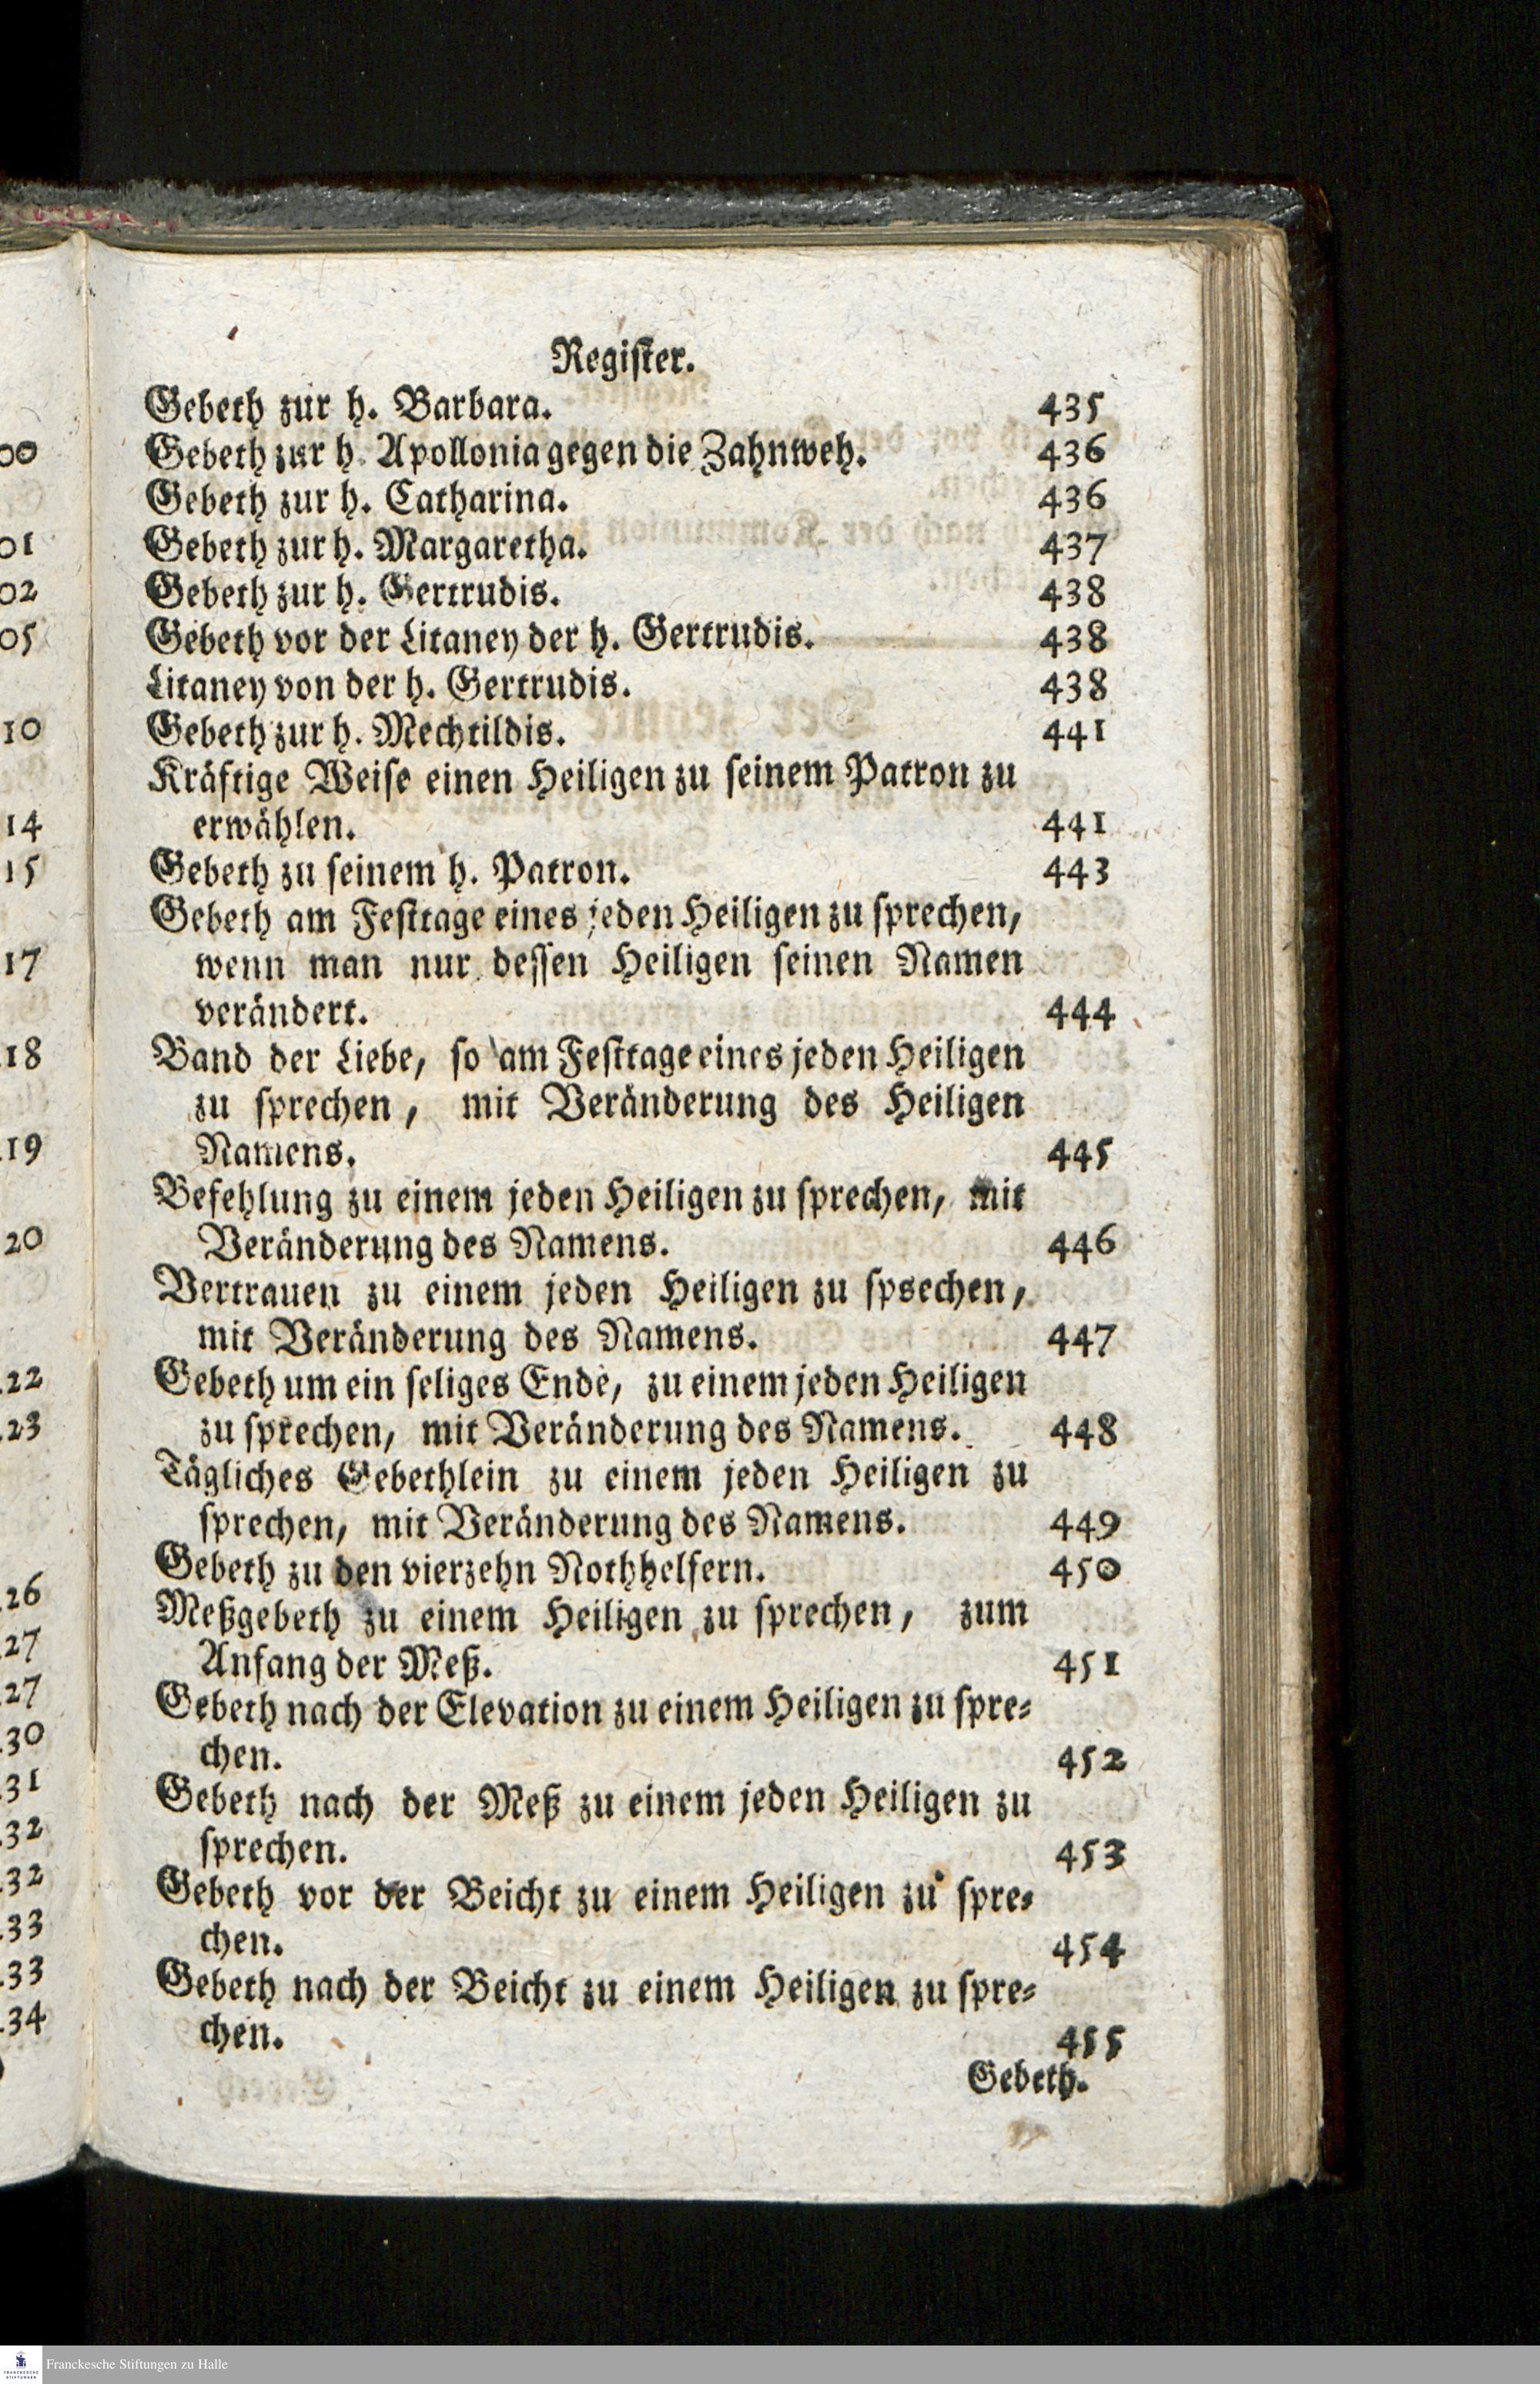 Register.
Gebeth zur h. Barbara. 435
Gebeth zur h. Apollonia gegen die Zahnweh. 436
Gebeth zur h. Catharina. 436
Gebeth zur h. Margaretha. 437
Gebeth zur h. Gertrudis. 438
Gebeth vor der Litaney der h. Gertrudis. 438
Litaney von der h. Gertrudis. 438
Gebeth zur h. Mechtildis. 441
Kräftige Weise einen Heiligen zu seinem Patron zu
erwählen. 441
Gebeth zu seinem h. Patron. 443
Gebeth am Festtage eines jeden Heiligen zu sprechen,
wenn man nur dessen Heiligen seinen Namen
verändert. 444
Band der Liebe, so am Festtage eines jeden Heiligen
zu sprechen, mit Veränderung des Heiligen
Namens. 445
Befehlung zu einem jeden Heiligen zu sprechen, mit
Veränderung des Namens. 446
Vertrauen zu einem jeden Heiligen zu spsechen,
mit Veränderung des Namens. 447
Gebeth um ein seliges Ende, zu einem jeden Heiligen
zu sprechen, mit Veränderung des Namens. 448
Tägliches Gebethlein zu einem jeden Heiligen zu
sprechen, mit Veränderung des Namens. 449
Gebeth zu den vierzehn Nothhelfern. 450
Meßgebeth zu einem Heiligen zu sprechen, zum
Anfang der Meß. 451
Gebeth nach der Elevation zu einem Heiligen zu spre⸗
chen. 452
Gebeth nach der Meß zu einem jeden Heiligen zu
sprechen. 453
Gebeth vor der Beicht zu einem Heiligen zu spre⸗
chen. 454
Gebeth nach der Beicht zu einem Heiligen zu spre⸗
chen. 455
Gebeth.
00
01
02
05
10
14
15
17
18
19
20
22
23
26
27
27
30
31
32
32
33
33
34
Franckesche Stiftungen zu Halle
FRANCKESCHE
STIFTUNGEN